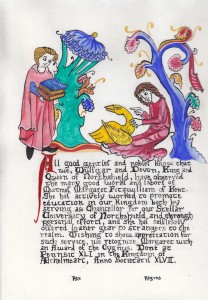 All good gentles and nobles know that
we, Wulfgar and Devon, King and
Queen of Northshield, have observed
the many good works and labors of
Margaret Fitzwilliam of Kent.
She has actively worked to promote
education in our Kingdom both by
serving as Chancellor for our Stellar
University of Northshield, and through
personal effort, and she has tirelessly
offered loaner garb to strangers to
the realm. Wishing to show appreciation for
such service, we recognize Margaret with
an Award of the Cygnus. Done at
Pennsic XLI in the Kingdom of
Æthelmearc, Anno Societatis XLVII.
Rex Regina